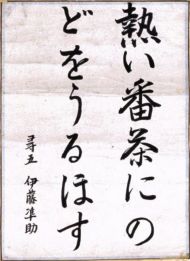 熱い番茶にの
どをうるほす
尋五 伊藤準助